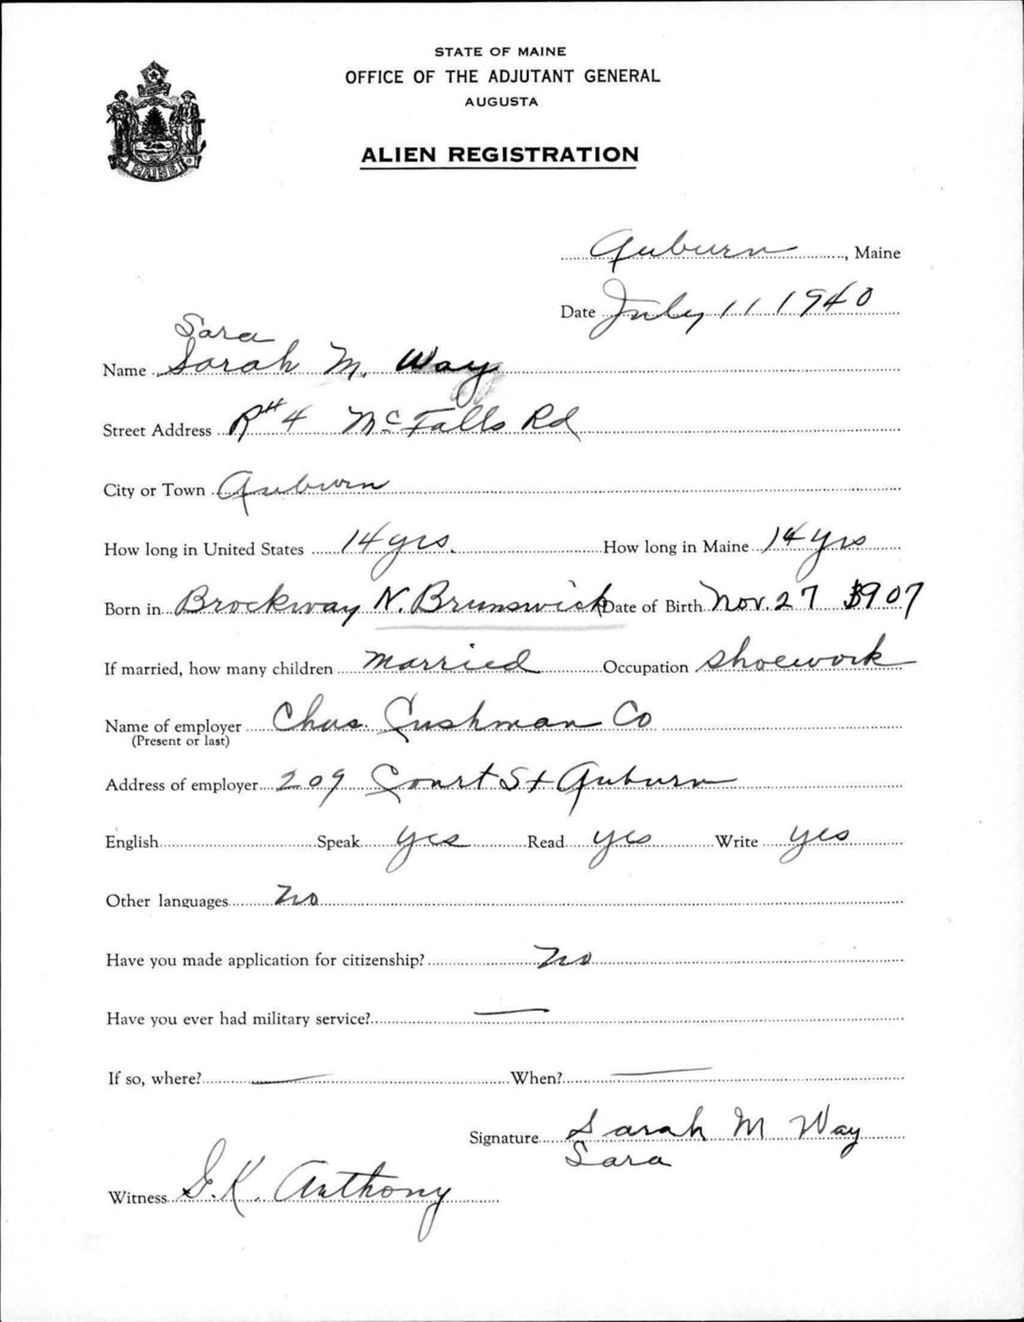 STATE OF MAINE
OFFICE OF THE ADJUTANT GENERAL
AUGUSTA
ALIEN REGISTRATION
MAINE
Auburn, Maine
Date July 11 1940
Sara
Name Sarah M. Way
Street Address R#4 McFalls Rd
City or Town Auburn
How long in United States 14 yrs. How long in Maine 14 yrs
Born in Brockway N. Brunswick Date of Birth Nov. 27 1907
If married, how many children married Occupation shoework
Name of employer Chas. Cushman Co
(Present or last)
Address of employer 209 Court St Auburn
English Speak yes Read yes Write yes
Other languages no
Have you made application for citizenship? no
Have you ever had military service? —
If so, where? — When? —
Signature Sarah M Way
Sara
Witness G.K. Anthony